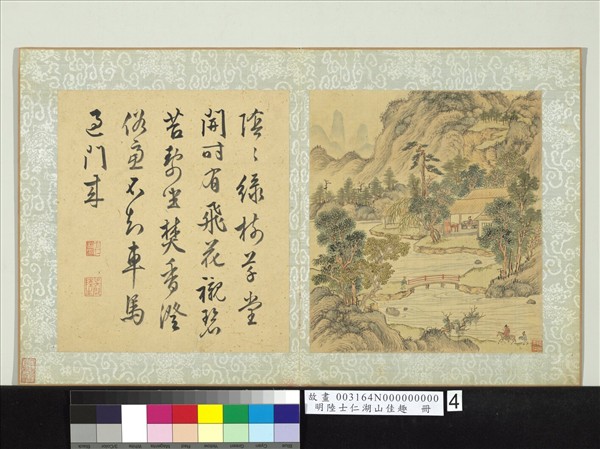 陰〻綠樹草堂
開時有飛花襯碧
苔默坐焚香澄
俗慮不知車馬
過門來
故畫 003164N000000000
明陸士仁湖山佳趣 冊
4